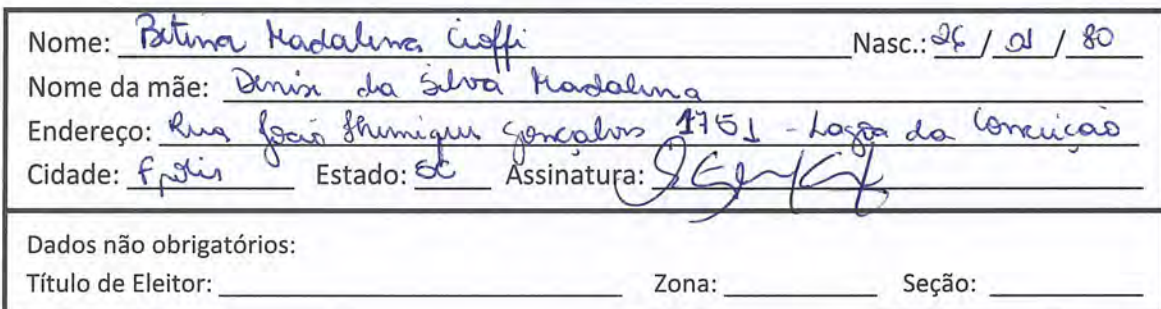 Nome: Betina Madalena Cioffi Nasc.: 26 / 01 / 80
Nome da mãe: Denise da Silva Madalena
Endereço: Rua João Henrique Gonçalves 1751 - Lagoa da Conceição
Cidade: Fpolis Estado: SC Assinatura:
Dados não obrigatórios:
Título de Eleitor: Zona: Seção: